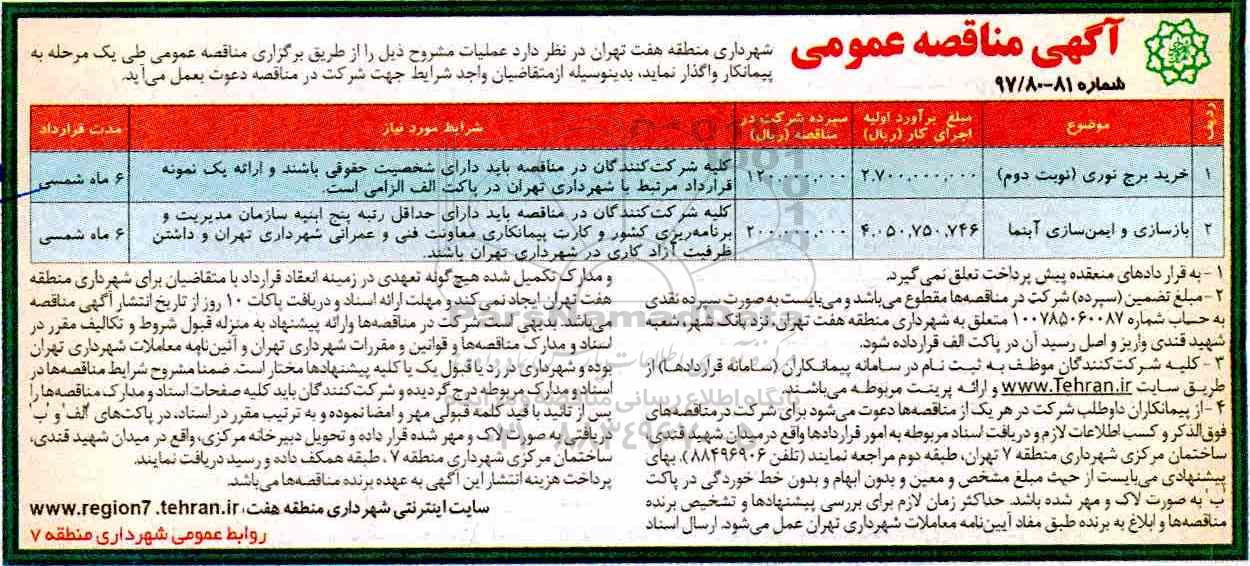 آگهی مناقصه عمومی
شماره ۸۱-۹۷/۸۰
شهرداری منطقه هفت تهران در نظر دارد عملیات مشروح ذیل را از طریق برگزاری مناقصه عمومی طی یک مرحله به
پیمانکار واگذار نماید، بدینوسیله ازمتقاضیان واجد شرایط جهت شرکت در مناقصه دعوت بعمل می‌آید.
ردیف	موضوع	مبلغ برآورد اولیه اجرای کار (ریال)	سپرده شرکت در مناقصه (ریال)	شرایط مورد نیاز	مدت قرارداد
۱	خرید برج نوری (نوبت دوم)	۲.۷۰۰.۰۰۰.۰۰۰	۱۲۰.۰۰۰.۰۰۰	کلیه شرکت‌کنندگان در مناقصه باید دارای شخصیت حقوقی باشند و ارائه یک نمونه	۶ ماه شمسی
قرارداد مرتبط با شهرداری تهران در پاکت الف الزامی است.
۲	بازسازی و ایمن‌سازی آبنما	۴.۰۵۰.۷۵۰.۷۴۶	۲۰۰.۰۰۰.۰۰۰	کلیه شرکت‌کنندگان در مناقصه باید دارای حداقل رتبه پنج ابنیه سازمان مدیریت و	۶ ماه شمسی
برنامه‌ریزی کشور و کارت پیمانکاری معاونت فنی و عمرانی شهرداری تهران و داشتن
ظرفیت آزاد کاری در شهرداری تهران باشند.
۱- به قراردادهای منعقده پیش پرداخت تعلق نمی‌گیرد.
۲- مبلغ تضمین (سپرده) شرکت در مناقصه‌ها مقطوع می‌باشد و می‌بایست به صورت سپرده نقدی
به حساب شماره ۱۰۰۷۸۵۰۶۰۰۸۷ متعلق به شهرداری منطقه هفت تهران، نزد بانک شهر، شعبه
شهید قندی واریز و اصل رسید آن در پاکت الف قرارداده شود.
۳- کلیه شرکت‌کنندگان موظف به ثبت نام در سامانه پیمانکاران (سامانه قراردادها) از
طریق سایت www.Tehran.ir و ارائه پرینت مربوطه می‌باشند.
۴- از پیمانکاران داوطلب شرکت در هر یک از مناقصه‌ها دعوت می‌شود برای شرکت در مناقصه‌های
فوق‌الذکر و کسب اطلاعات لازم و دریافت اسناد مربوطه به امور قراردادها واقع در میدان شهید قندی،
ساختمان مرکزی شهرداری منطقه ۷ تهران، طبقه دوم مراجعه نمایند (تلفن ۸۸۴۹۶۹۰۶). بهای
پیشنهادی می‌بایست از حیث مبلغ مشخص و معین و بدون ابهام و بدون خط خوردگی در پاکت
"ب" به صورت لاک و مهر شده باشد. حداکثر زمان لازم برای بررسی پیشنهادها و تشخیص برنده
مناقصه‌ها و ابلاغ به برنده طبق مفاد آیین‌نامه معاملات شهرداری تهران عمل می‌شود. ارسال اسناد
و مدارک تکمیل شده هیچ گونه تعهدی در زمینه انعقاد قرارداد با متقاضیان برای شهرداری منطقه
هفت تهران ایجاد نمی‌کند و مهلت ارائه اسناد و دریافت پاکات ۱۰ روز از تاریخ انتشار آگهی مناقصه
می‌باشد. بدیهی است شرکت در مناقصه‌ها وارائه پیشنهاد به منزله قبول شروط و تکالیف مقرر در
اسناد و مدارک مناقصه‌ها و قوانین و مقررات شهرداری تهران و آئین‌نامه معاملات شهرداری تهران
بوده و شهرداری در رد یا قبول یک یا کلیه پیشنهادها مختار است. ضمنا مشروح شرایط مناقصه‌ها در
اسناد و مدارک مربوطه درج گردیده و شرکت‌کنندگان باید کلیه صفحات اسناد و مدارک مناقصه‌ها را
پس از تائید با قید کلمه قبولی مهر و امضا نموده و به ترتیب مقرر در اسناد، در پاکت‌های "الف" و "ب"
دریافتی به صورت لاک و مهر شده قرار داده و تحویل دبیرخانه مرکزی، واقع در میدان شهید قندی،
ساختمان مرکزی شهرداری منطقه ۷، طبقه همکف داده و رسید دریافت نمایند.
پرداخت هزینه انتشار این آگهی به عهده برنده مناقصه‌ها می‌باشد.
سایت اینترنتی شهرداری منطقه هفت: www.region7.tehran.ir
روابط عمومی شهرداری منطقه ۷
ParsNamadData
پایگاه اطلاع رسانی مناقصه و مزایده